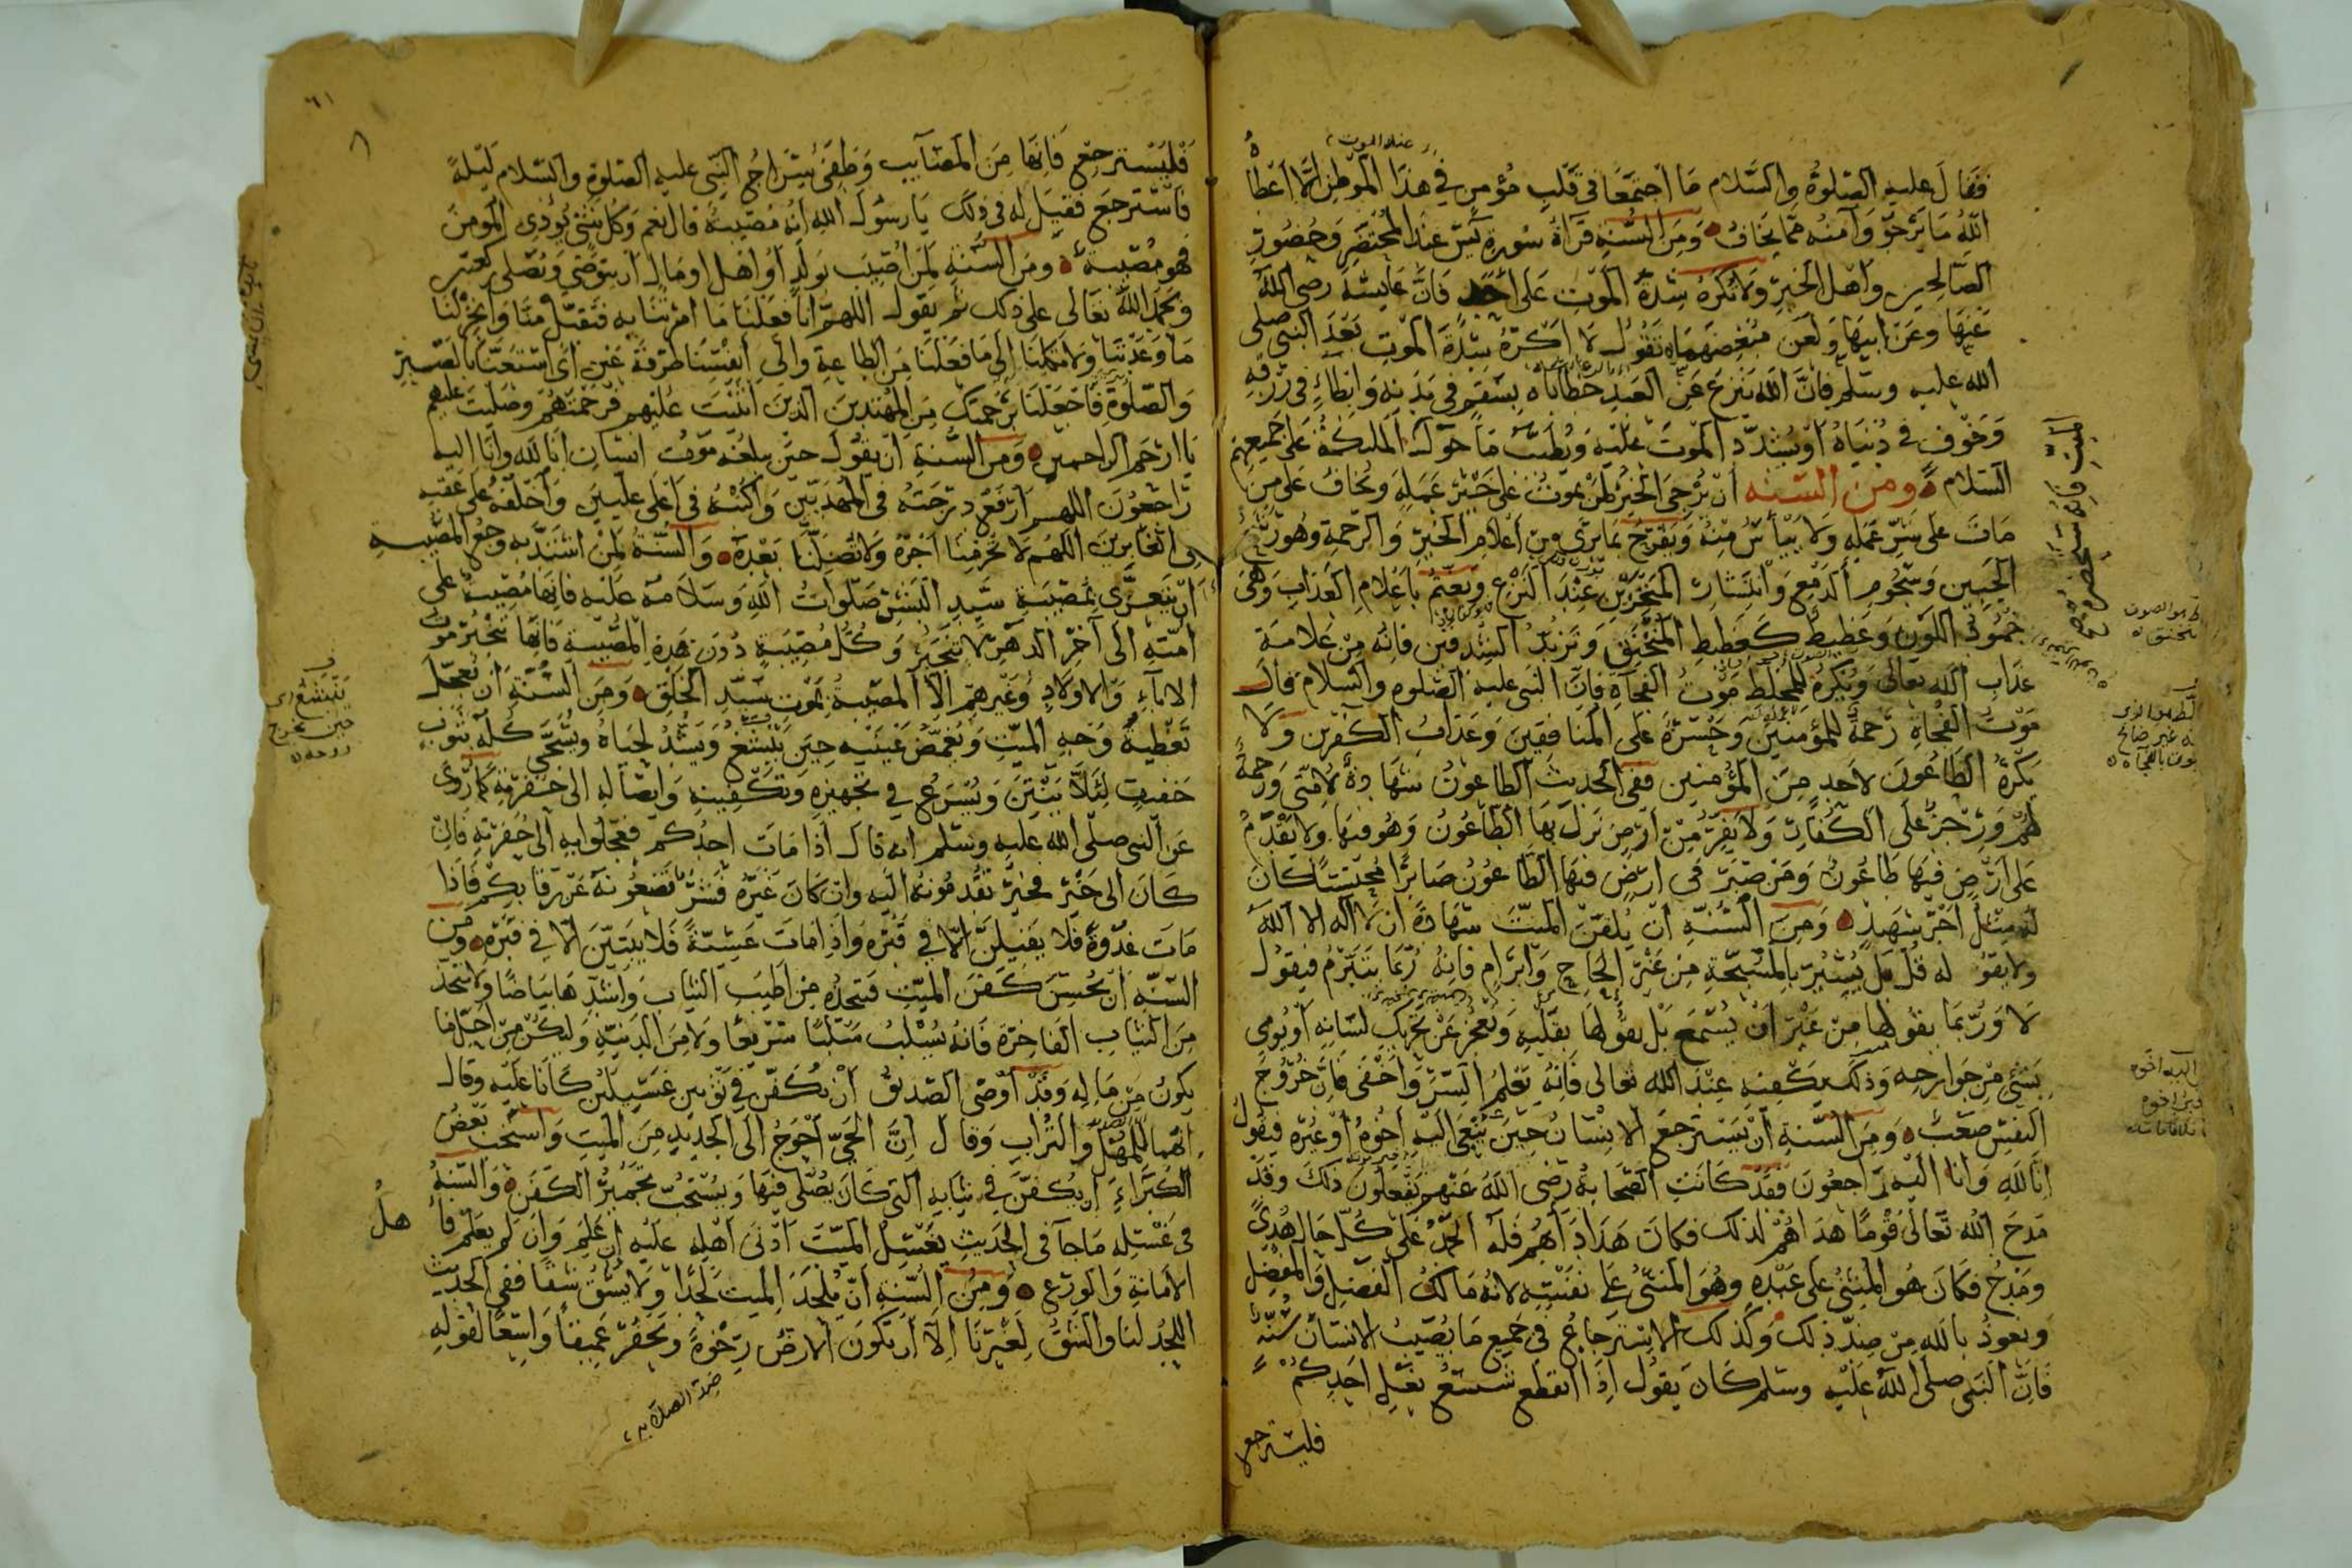 فقال عليه الصلوة والسلام ما اجتمعا في قلب مؤمن في هذا الموطن الا اعطاه
الله ما يرجو وآمنه مما يخاف ومن السنة قراءة سورة يس عند المحتضر وحضور
الصالحين واهل الخير ولا تكره شدة الموت على احد فان عايشة رضي الله
عنها وعن ابيها ولعن مبغضهما تقول لا اكره شدة الموت بعد النبي صلى
الله عليه وسلم فان الله ينزع عن العبد خطاياه بسقم في بدنه وابطاء في رزقه
وخوف في دنياه او يشدد الموت عليه ويطيب ما حول الملائكة على جميعهم
السلام ومن السنة ان يرجى الخير لمن يموت على خير عمله ويخاف على من
مات على شر عمله ولا ييأس منه ويفرح بما يرى من اعلام الخير والرحمة وهو رشح
الجبين وسجوم الدمع وانتشار المنخرين عند النزع ويغتم باعلام العذاب وهي
خمود اللون وغطيط كغطيط المختنق وتزبد الشدقين فانه من علامة
عذاب الله تعالى ويكره للمخلط موت الفجاة فان النبي عليه الصلوة والسلام قال
موت الفجاة رحمة للمؤمنين وحسرة على المنافقين وعذاب الكفرين ولا
يكره الطاعون لاحد من المؤمنين ففي الحديث الطاعون شهادة لامتي ورحمة
لهم ورجز على الكفار ولا يفر من ارض نزل بها الطاعون وهو فيها ولا يقدم
على ارض فيها طاعون ومن صبر في ارض فيها الطاعون صابرا محتسبا كان
له مثل اجر شهيد ومن السنة ان يلقن الميت شهادة ان لا اله الا الله
ولا يقول له قل بل يشير بالمسبحة من غير الحاح وابرام فانه ربما يتبرم فيقول
لا وربما يقولها من غير ان يستمع بل يقولها بقلبه ويعجز عن تحريك لسانه او يومي
بشئ من جوارحه وذلك يكفيه عند الله تعالى فانه يعلم السر واخفى فان خروج
النفس صعب ومن السنة ان يسترجع الانسان حين ينعى اليه اخوه او غيره فيقول
انا لله وانا اليه راجعون فقد كانت الصحابة رضي الله عنهم يفعلون ذلك وقد
مدح الله تعالى قوما هداهم لذلك فكان هذا دأبهم فله الحمد على كل حال هدى
ومدح فكان هو المثني على عبده وهو المثنى على نفسه لانه مالك الفضل والمفضل
ونعوذ بالله من ضد ذلك وكذلك الاسترجاع في جميع ما يصيب الانسان سنة
فان النبي صلى الله عليه وسلم كان يقول اذا انقطع شسع نعل احدكم
فليسترجع
٦١
فليسترجع فانها من المصايب وطفئ سراج النبي عليه الصلوة والسلام ليلة
فاسترجع فقيل له في ذلك يا رسول الله انه مصيبة قال نعم وكل شئ يؤذي المومن
فهو مصيبة ومن السنة لمن اصيب بولد او اهل او مال ان يتوضى ويصلى ركعتين
ويحمد الله تعالى على ذلك ثم يقول اللهم انا فعلنا ما امرتنا به فتقبل منا وانجز لنا
ما وعدتنا ولا تكلنا الى ما فعلنا من الطاعة والى انفسنا طرفة عين اى استعنا بالصبر
والصلوة فاجعلنا برحمتك من المهتدين الذين اثنيت عليهم فرحمتهم وصليت عليهم
يا ارحم الراحمين ومن السنة ان يقول حين يبلغه موت انسان انا لله وانا اليه
راجعون اللهم ارفع درجته في المهديين واكتبه في اعلى عليين واخلفه على عقبه
في الغابرين اللهم لا تحرمنا اجره ولا تضلنا بعده والسنة لمن اشتد به وجع المصيبة
ان يتعزى بمصيبة سيد البشر صلوات الله وسلامه عليه فانها مصيبة على
امته الى آخر الدهر لا ينجبر وكل مصيبة دون هذه المصيبة فانها تنجبر موت
الاباء والاولاد وغيرهم الا المصيبة بموت سيد الخلق ومن السنة ان يعجل
تغطية وجه الميت ويغمض عينيه حين ينشغ ويشد لحياه ويسجى كله بثوب
خفيف لئلا ينتن ويسرع في تجهيزه وتكفينه وايصاله الى حفرته كما روى
عن النبي صلى الله عليه وسلم انه قال اذا مات احدكم فعجلوا به الى حفرته فان
كان الى خير فخير تقدمونه اليه وان كان غيره فشر تضعونه عن رقابكم فاذا
مات غدوة فلا يقيلن الا في قبره واذا مات عشية فلا يبيتن الا في قبره ومن
السنة ان يحسن كفن الميت فيتخذه من اطيب الثياب واشدها بياضا ولا يتخذ
من الثياب الفاخرة فانه يسلب سلبا سريعا ولا من الدنية وليكن من احل ما
يكون من ماله وقد اوصى الصديق ان يكفن في ثوبين غسيلين كانا عليه وقال
انهما للمهل والتراب وقال ان الحي احوج الى الجديد من الميت واستحب بعض
الكبراء ان يكفن في ثيابه التي كان يصلى فيها ويستحب تجمير الكفن والسنة
في غسله ما جآ في الحديث يغسل الميت ادنى اهله عليه ان علم وان لم يعلم فاهل
الامانة والورع ومن السنة ان يلحد الميت لحدا ولا يشق شقا ففي الحديث
اللحد لنا والشق لغيرنا الا ان تكون الارض رخوة ويحفر عميقا واسعا لقوله